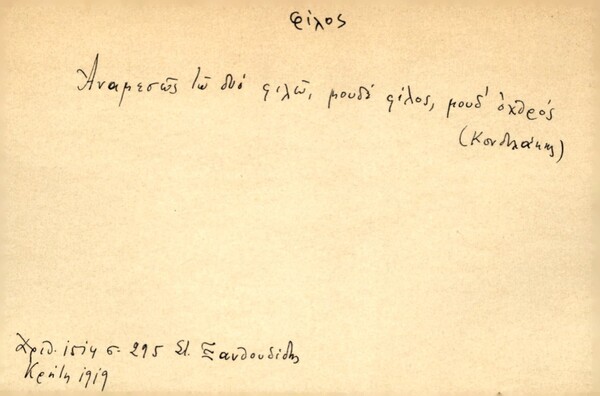 φίλος
Ἀναμεσῶς τῶ δυὸ φιλῶ, μουδὲ φίλος, μουδ' ὀχθρός
(Κονδυλάκης)
Ἀριθ. 1514 σ. 295 Στ. Ξανθουδίδης
Κρήτη 1919